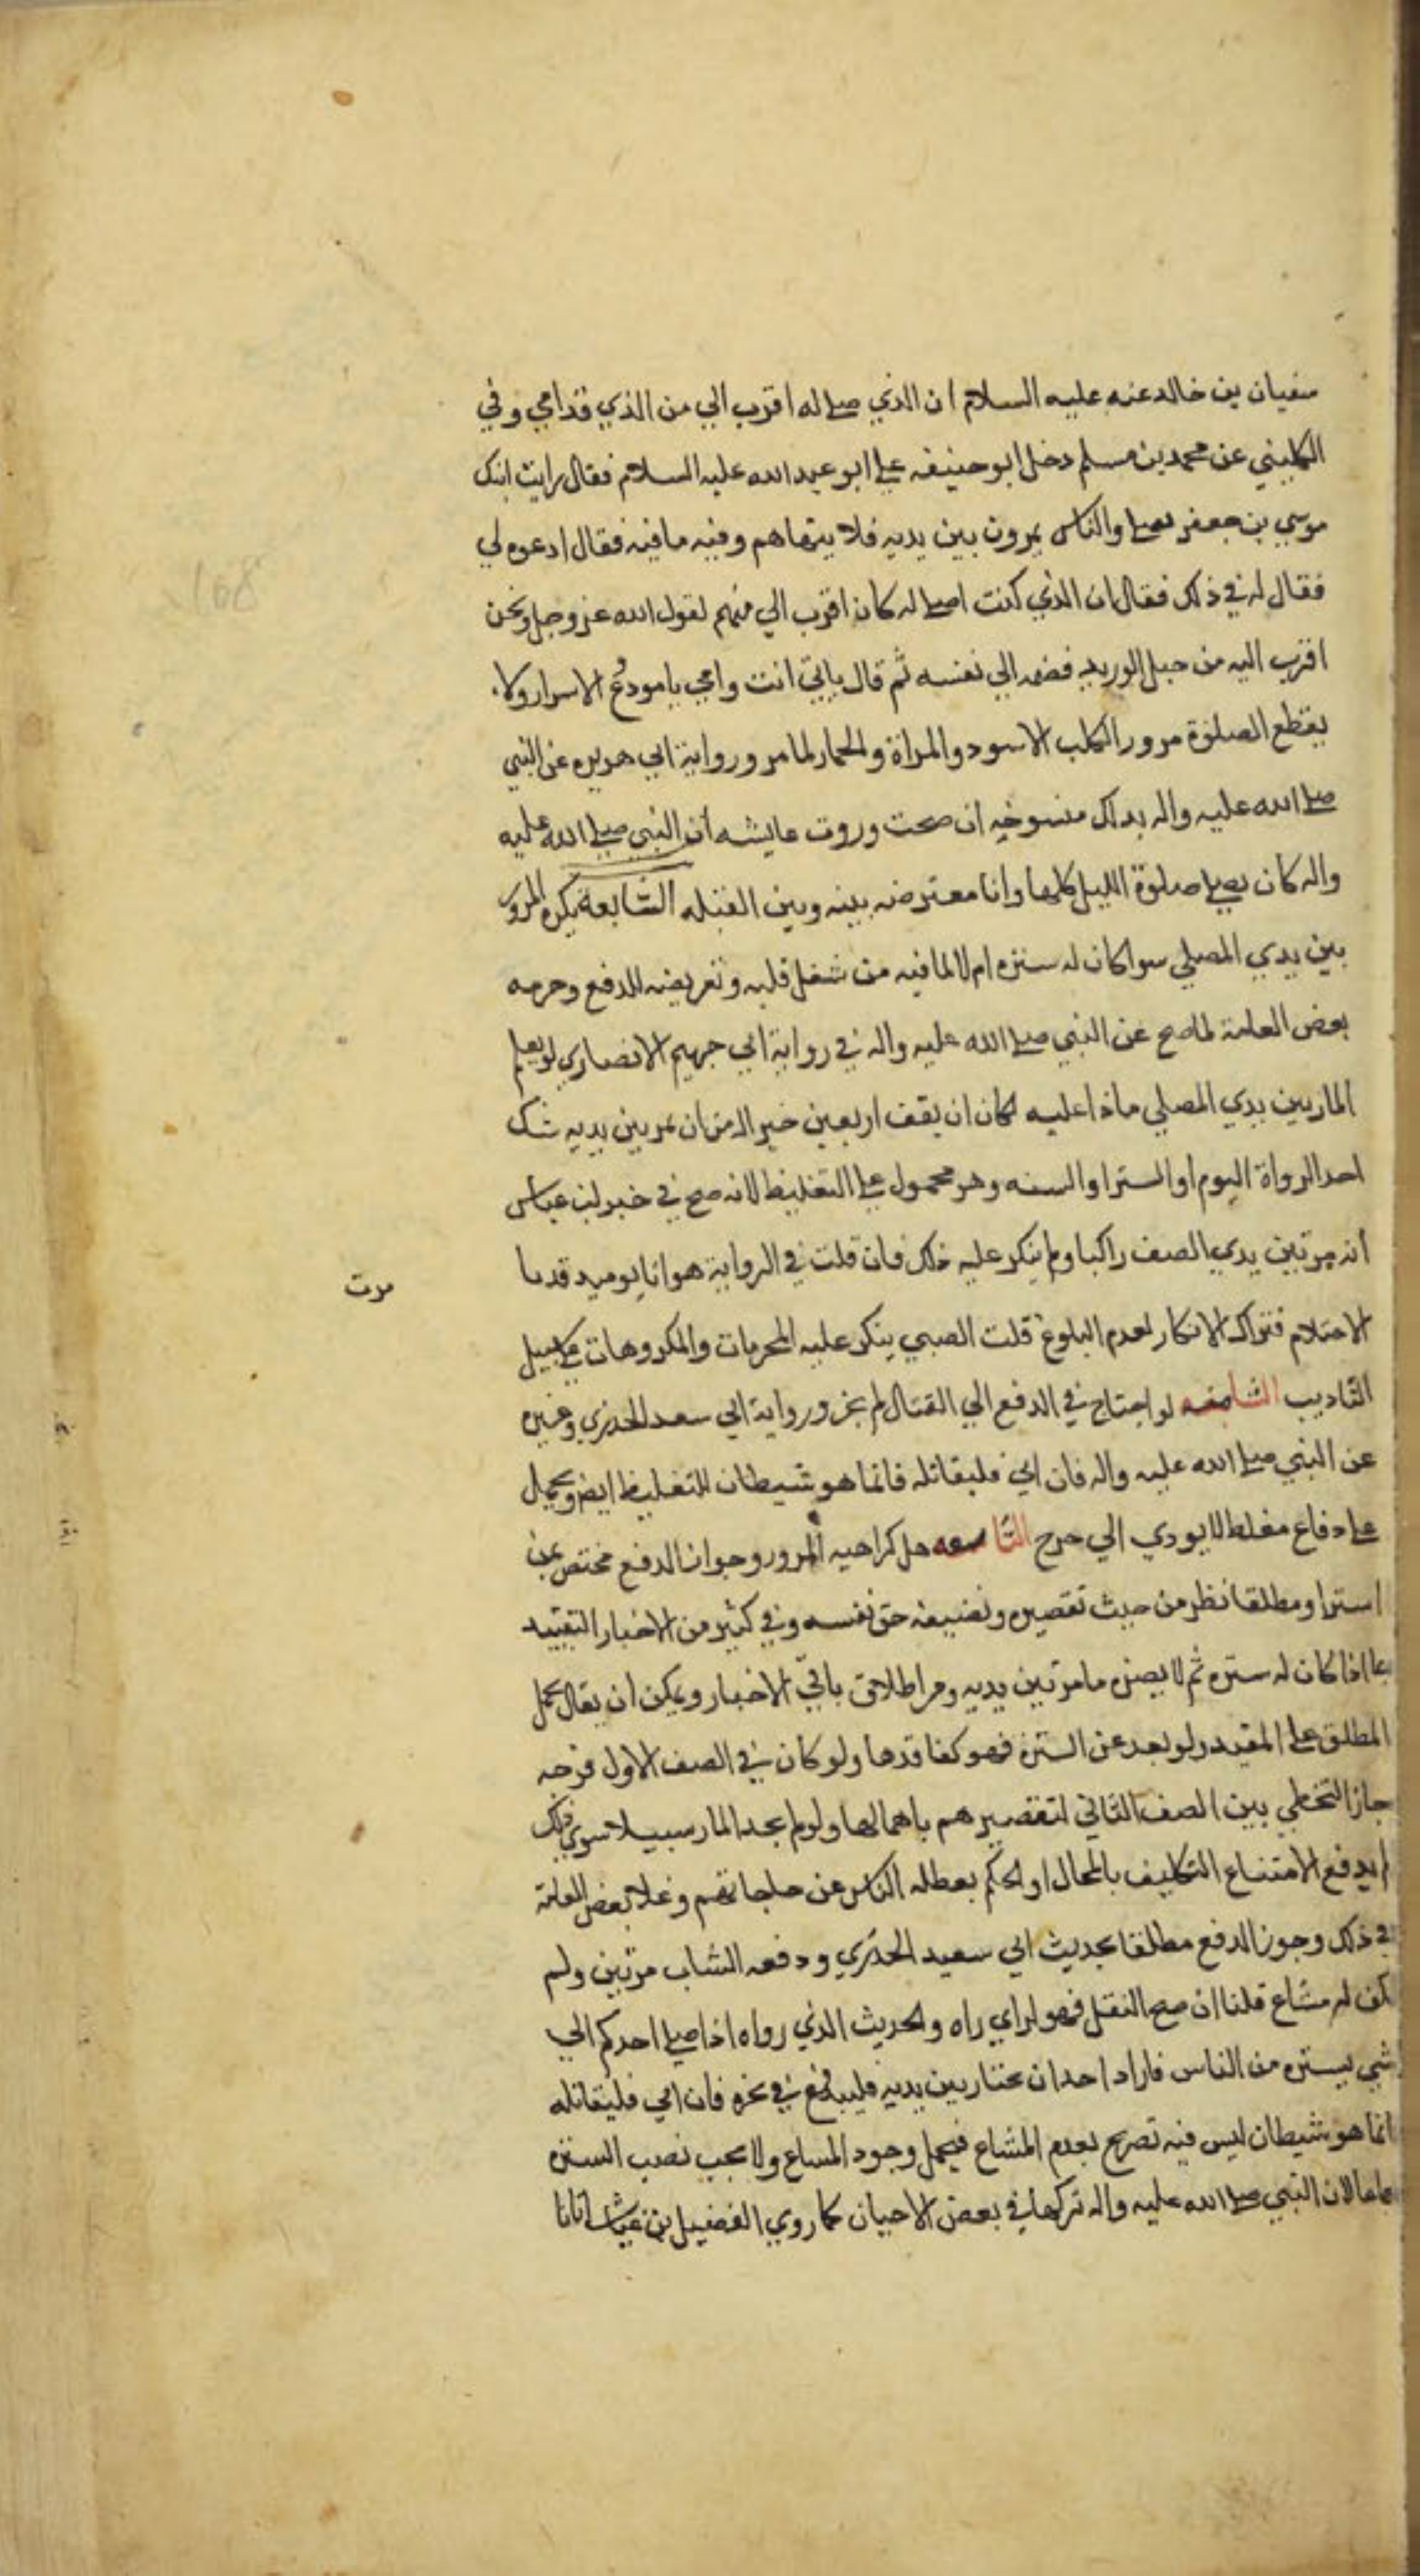 سفيان بن خالد عنه عليه السلام ان الذي اصلي له اقرب الي من الذي قدامي وفي
الكليني عن محمد بن مسلم دخل ابو حنيفه علي ابو عبد الله عليه السلام فقال رايت ابنك
موسي بن جعفر يصلي والناس يمرون بين يديه فلا ينهاهم وفيه ما فيه فقال ادعوه لي
فقال له في ذلك فقال ان الذي كنت اصلي له كان اقرب الي منهم لقول الله عز وجل ونحن
اقرب اليه من حبل الوريد فضمه الي نفسه ثم قال بابي انت وامي يا مودع الاسرار ولا
يقطع الصلوة مرور الكلب الاسود والمراة والحمار لما مر ورواية ابي هريره عن النبي
صلي الله عليه واله بذلك منسوخه ان صحت وروت عايشه ان النبي صلي الله عليه
واله كان يصلي صلوة الليل كلها وانا معترضه بينه وبين القبله السابعة يكره المرور
بين يدي المصلي سوا كان له ستره ام لا لما فيه من شغل قلبه وتعريضه للدفع وحرمه
بعض العامة لما صح عن النبي صلي الله عليه واله في رواية ابي جهيم الانصاري لو يعلم
المار بين يدي المصلي ماذا عليه لكان ان يقف اربعين خير اله من ان يمر بين يديه شك
احد الرواة اليوم او الشهر او السنه وهو محمول علي التغليظ لانه صح في خبر ابن عباس
انه مر بين يدي الصف راكبا ولم ينكر عليه ذلك فان قلت في الرواية هو انا يوميد قد نا
مرت
الاحتلام فترك الانكار لعدم البلوغ قلت الصبي ينكر عليه المحرمات والمكروهات علي سبيل
التاديب الثامنه لو احتاج في الدفع الي القتال لم يجز ورواية ابي سعد الخدري وغيره
عن النبي صلي الله عليه واله فان ابي فليقاتله فانما هو شيطان للتغليظ ايض ويحمل
علي دفاع مغلظ لا يودي الي حرج التاسعه هل كراهيه المرور وجواز الدفع مختص بمن
استتر او مطلقا نظر من حيث تقصيره وتضييعه حق نفسه وفي كثير من الاخبار التقييد
بما اذا كان له ستره ثم لا يضره ما مر بين يديه ومن اطلاق باقي الاخبار ويمكن ان يقال بحمل
المطلق علي المقيد ولو بعد عن السترة فهو كفاقدها ولو كان في الصف الاول فرجه
جاز التخطي بين الصف الثاني لتقصيرهم باهمالها ولو لم يجد المار سبيلا سوي ذلك
لم يدفع الامتناع التكليف بالمحال او الحكم بعطله الناس عن حاجاتهم وغلا بعض العامة
في ذلك وجوز الدفع مطلقا بحديث ابي سعيد الخدري ودفعه الشاب مرتين ولم
يكن له مشاع قلنا ان صح النقل فهو لراي راه والحديث الذي رواه اذا صلي احدكم الي
شي يستره من الناس فاراد احد ان يجتاز بين يديه فليدفع في نحره فان ابي فليقاتله
انما هو شيطان ليس فيه تصريح بعدم المشاع فيحمل وجود المساغ ولا يجب نصب السترة
اجماعا لان النبي صلي الله عليه واله تركها في بعض الاحيان كما روي الفضيل بن عباس اتانا